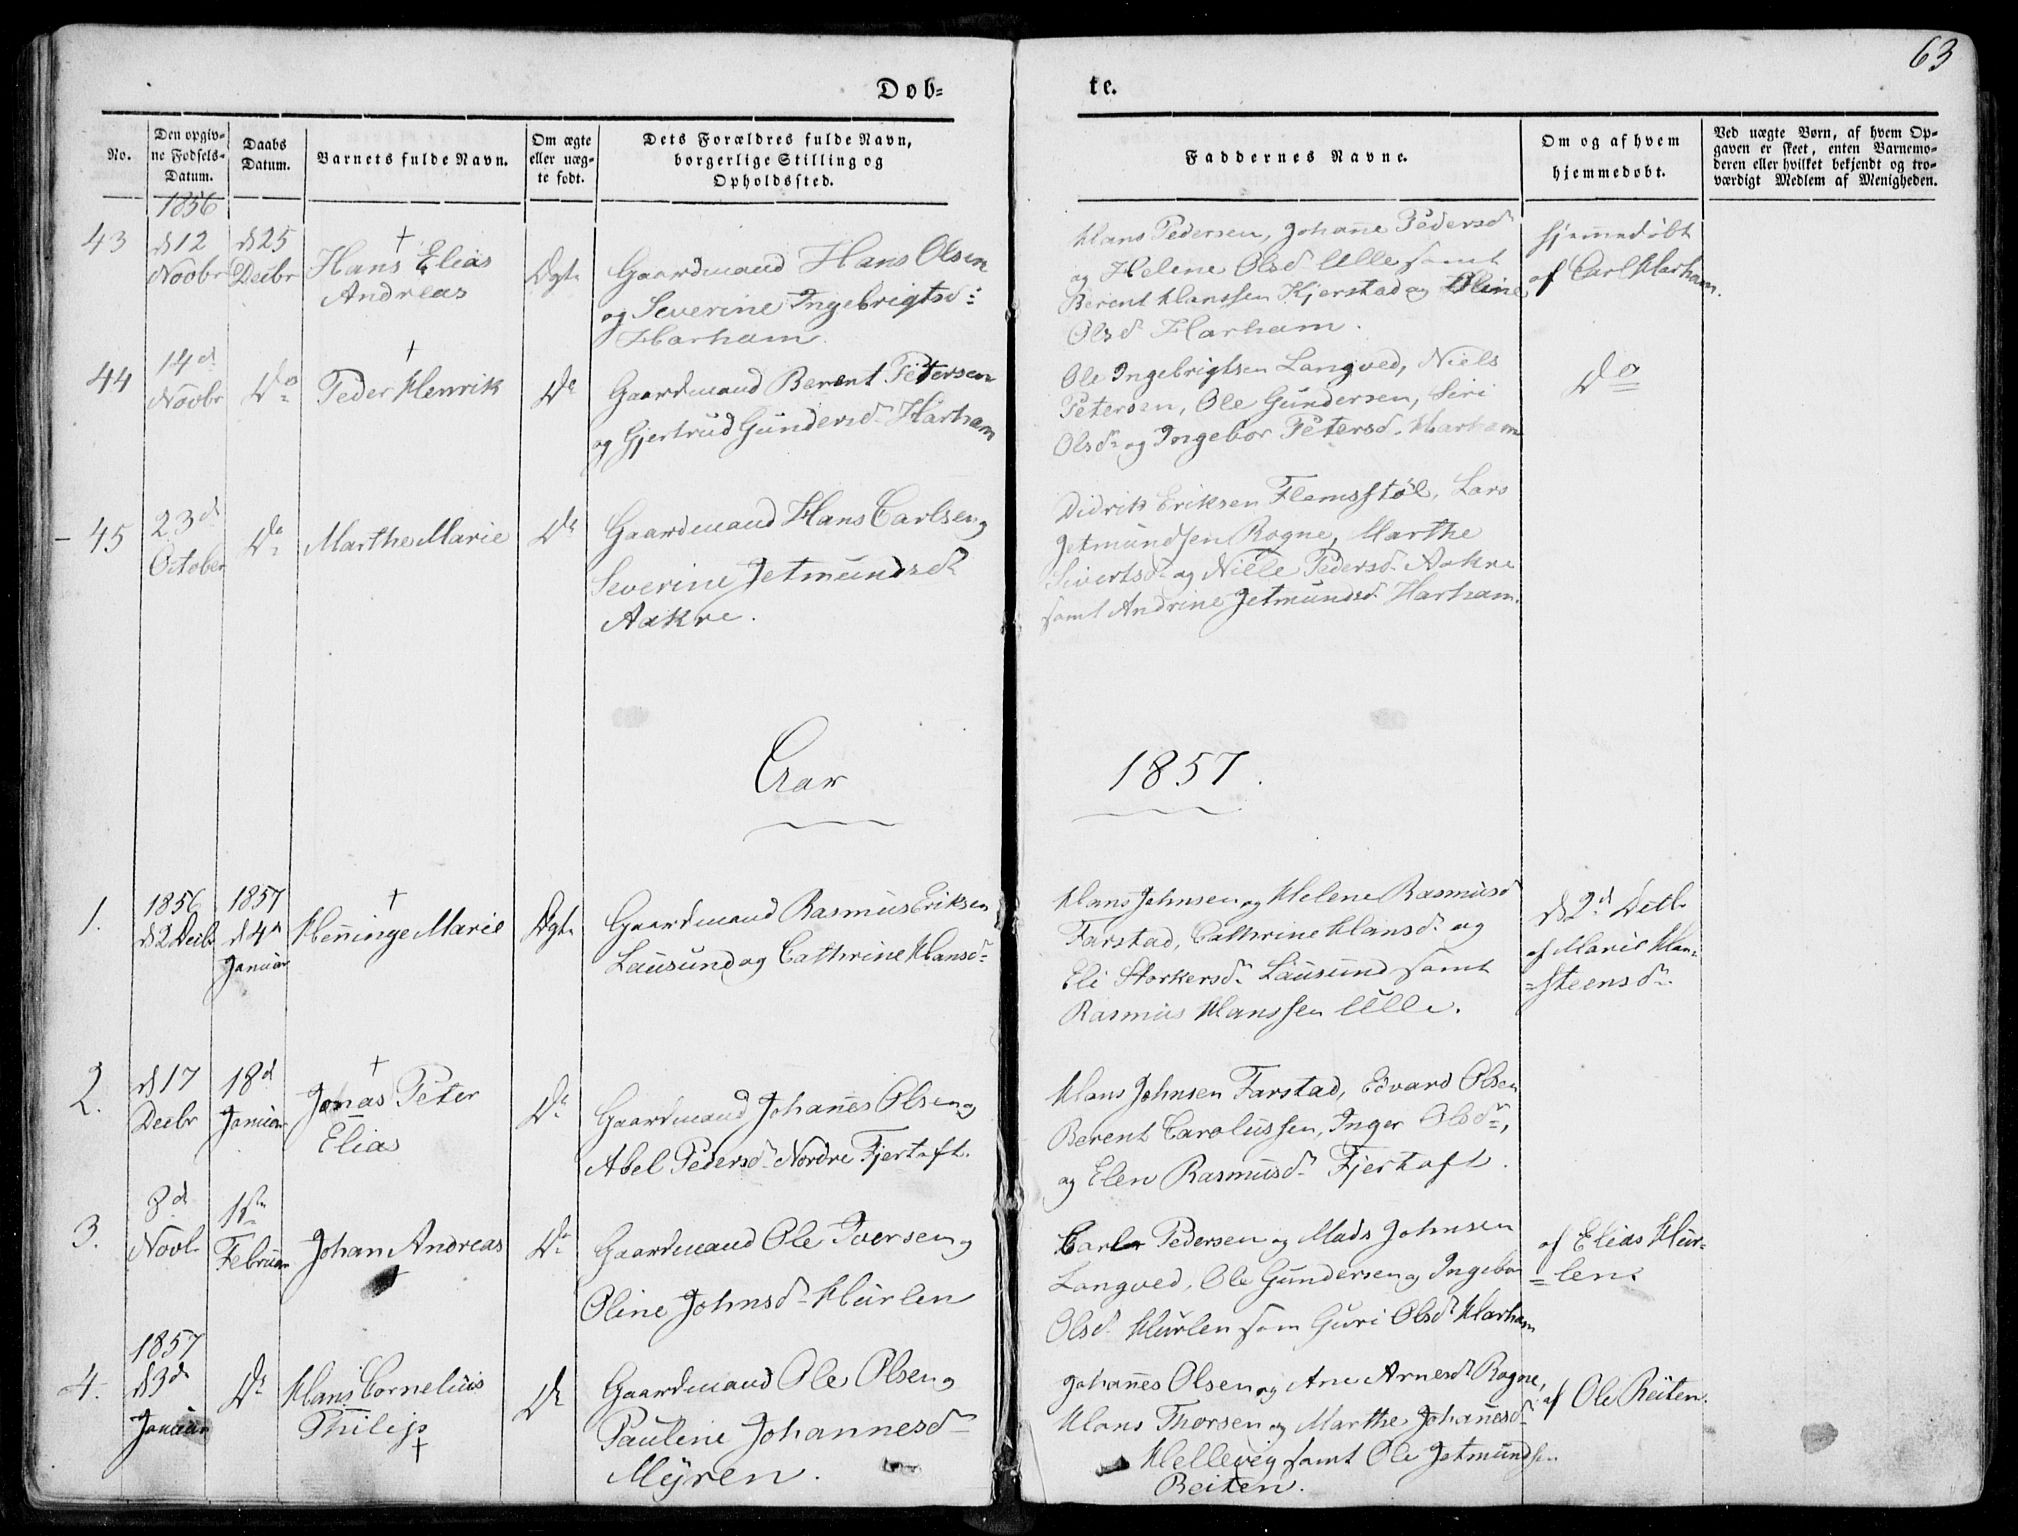 63
Døb=
te.
No.
Den opgiv=
ne Fødsels=
Datum.
Daabs
Datum.
Barnets fulde Navn.
Om ægte
eller uæg=
te født.
Dets Forældres fulde Navn,
borgerlige Stilling og
Opholdssted.
Faddernes Navne.
Om og af hvem
hjemmedøbt.
Ved uægte Børn, af hvem Op=
gaven er skeet, enten Barnemo=
deren eller hvilket bekjendt og tro=
værdigt Medlem af Menigheden.
1856
43
d 12
Novbr
d 25
Decbr
†
Hans Elias
Andreas
Ægte
Gaardmand Hans Olsen
og Severine Ingebrigtsd:
Harham
Hans Pedersen, Johanne Pedersd
og Helene Olsd Ulle samt
Berent Hanssen Kjerstad og Oline
Olsd Harham.
hjemmedøbt
af Carl Harham.
44
14d
Novbr
Do
†
Peder Henrik
Do
Gaardmand Berent Petersen
og Gjertrud Gundersd. Harham
Ole Ingebrigtsen Langved, Niels
Petersen, Ole Gundersen, Siri
Olsd. og Ingebor Petersd. Harham
Do
45
23d
October
Do
Marthe Marie
Do
Gaardmand Hans Carlsen og
Severine Jetmundsd
Aakre.
Didrik Eriksen Flemsstøl, Lars
Jetmundsen Rogne, Marthe
Sivertsd. og Niele Pedersd. Aakre
samt Andrine Jetmundsd. Harham.
Aar
1857.
1.
1856
d 2 Decbr
1857
d 4d
Januar
†
Henninge Marie
Ægte
Gaardmand Rasmus Eriksen
Lausund og Cathrine Hansd.
Hans Johnsen og Helene Rasmusd
Farstad, Cathrine Hansd. og
Eli Storkersd. Lausund samt
Rasmus Hanssen Ulle.
d 2d Decb.
af Marie Han=
=steensd.
2.
d 17
Decbr
18d
Januar
†
Jonas Peter
Elias
Do
Gaardmand Johannes Olsen og
Abel Pedersd. Nordre Fjertoft.
Hans Johnsen Farstad, Edvard Olsen
Berent Carolussen, Inger Olsd.,
og Elen Rasmusd. Fjertoft.
3.
8d
Novb.
1ste
Februar
Johan Andreas
†
Do
Gaardmand Ole Iversen og
Oline Johnsd. Hurlen
Carl Pedersen og Mads Johnsen
Langved, Ole Gundersen og Ingebor
Olsd. Hurlen som Guri Olsd. Harham
af Elias Hur=
=len.
4.
1857
d 3d
Januar
Do
Hans Cornelius
Philip
†
Do
Gaardmand Ole Olsen og
Pauline Johannesd
Myren.
Johannes Olsen og Ane Arnesd. Rogne,
Hans Thorsen og Marthe Johannesd.
Hellevig samt Ole Jetmundsen
Reiten.
af Ole Reiten.